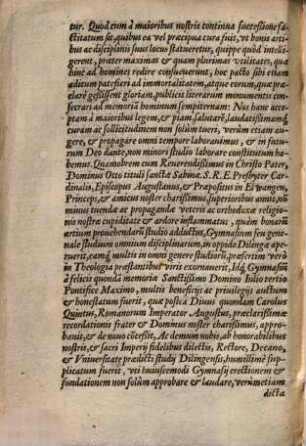 tur. Quod cum à maioribus nostris continua successione fa-
ctitatum sit, quibus ea vel præcipua cura fuit, vt bonis arti-
bus ac disciplinis suus locus statueretur, quippe quòd intelli-
gerent, præter maximas & quàm plurimas vtilitates, quæ
hinc ad homines redire consueuerunt, hoc pacto sibi etiam
aditum patefieri ad immortalitatem, atque eorum, quæ præ-
clarè gessissent gloriam, publicis literarum monumentis conse-
crari ad memoriã hominum sempiternam: Nos hanc acce-
ptam à maioribus legem, & piam, salutarẽ, laudatissimamq;
curam ac sollicitudinem non solùm tueri, verùm etiam auge-
re, & propagare omni tempore laborauimus, & in futu-
rum Deo dante, non minori studio laborare constitutum ha-
bemus. Quamobrem cum Reuerendissimus in Christo Pater,
Dominus Otto tituli sanctæ Sabinæ S.R.E. Presbyter Car-
dinalis, Episcopus Augustanus, & Præpositus in Elwangen,
Princeps, & amicus noster charissimus, superioribus annis, nõ
minus tuendæ ac propagandæ veteris ac orthodoxæ religio-
nis nostræ cupiditate & ardore inflammatus, quàm bonarũ
artium prouehendarũ studio adductus, Gymnasium seu gene-
rale studium omnium disciplinarum, in oppido Dilinga ape-
ruerit, eamq; multis in omni genere studiorũ, præsertim verò
in Theologia præstantibus viris exornauerit. Idq; Gymnasiũ
à felicis quondã memoriæ Sanctissimo Domino Iulio tertio
Pontifice Maximo, multis beneficijs ac priuilegijs auctum
& honestatum fuerit, quæ postea Diuus quondam Carolus
Quintus, Romanorum Imperator Augustus, præclarissimæ
recordationis frater & Dominus noster charissimus, appro-
bauit, & de nouo cõcessit, Ac demum nobis, ab honorabilibus
nostris, & sacri Imperij fidelibus dilectis, Rectore, Decano,
& Vniuersitate prædicti studij Dilingensis, humillimè sup-
plicatum fuerit, vti huiuscemodi Gymnasij erectionem &
fundationem non solùm approbare & laudare, verùmetiam
dicta